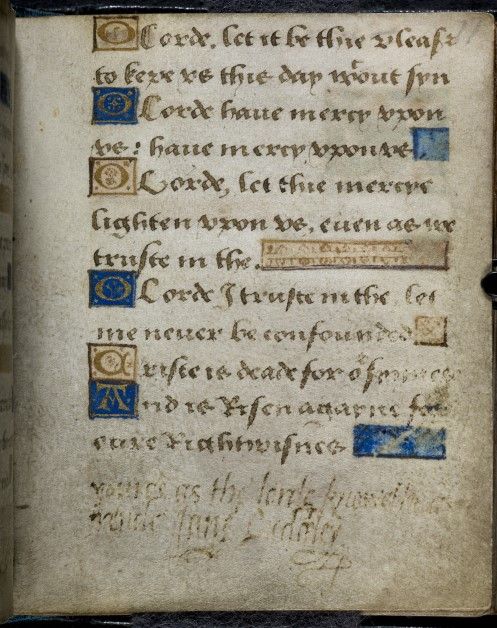 O Lorde, let it be thie pleasr
to kepe vs this day wout syn
O Lorde haue mercy vpon
vs: haue mercy vpon vs
O Lorde, let thie mercye
lighten vpon vs, euen as we
truste in the.
O Lorde I truste in the, let
me neuer be confounded
Criste is deade for o synnes
And is Risen agayne for
oure Rightwisnes
youres as the lorde knoweth as
Jane Duddley